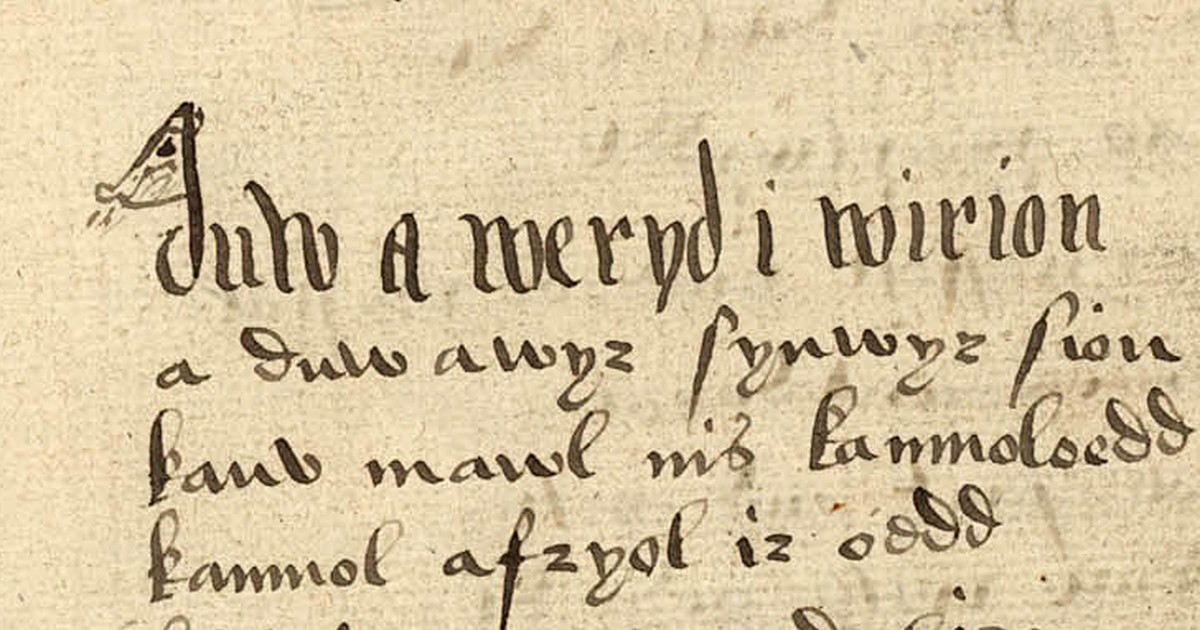 duw a weryd i wirion
a duw awyr synwyr sion
kawb mawl nis kanmoloedd
kanmol afryol ir oedd